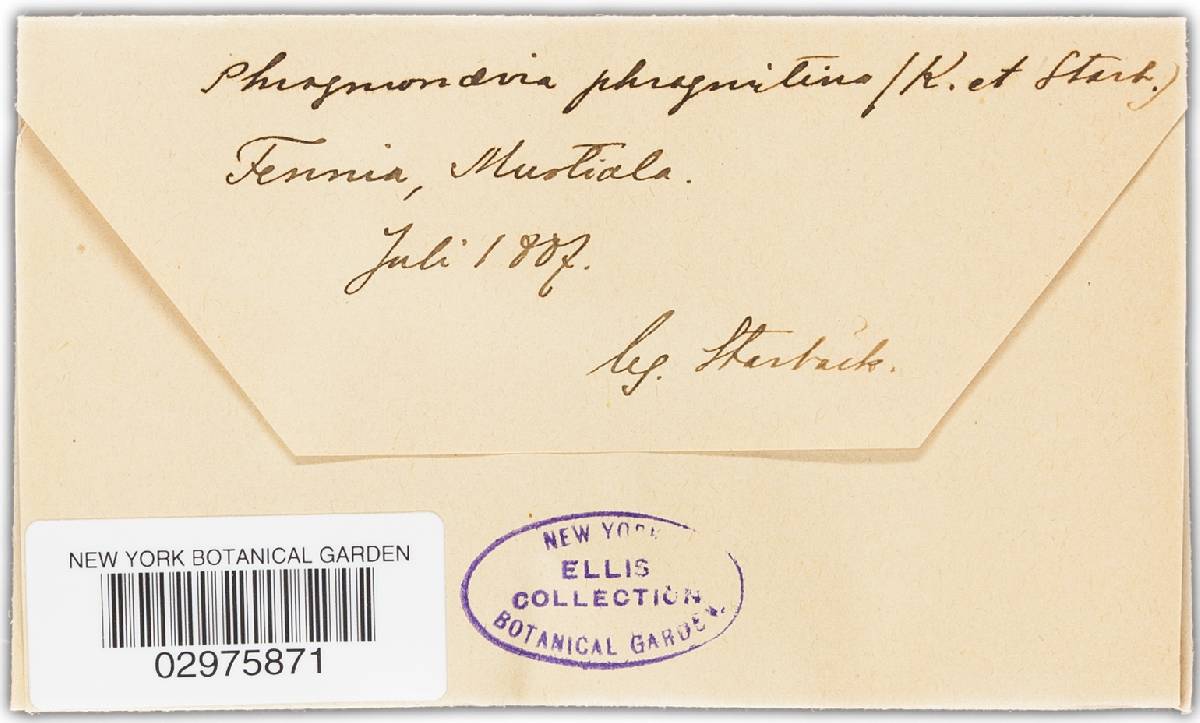 Phragmonævia phragmitina (K. et Starb.)
Fennia, Mustiala.
Juli 1887.
leg. Starbäck.
NEW YORK BOTANICAL GARDEN
02975871
NEW YORK
ELLIS
COLLECTION
BOTANICAL GARDEN.